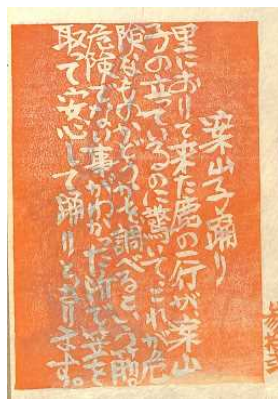 案山子踊り
里におりて来た鹿の一行が、案山
子の立っているのに驚いて、これが危
険なものかどうかを調べるという前。
危険でない事がわかった所で笠を
取って安心して踊りとなります。